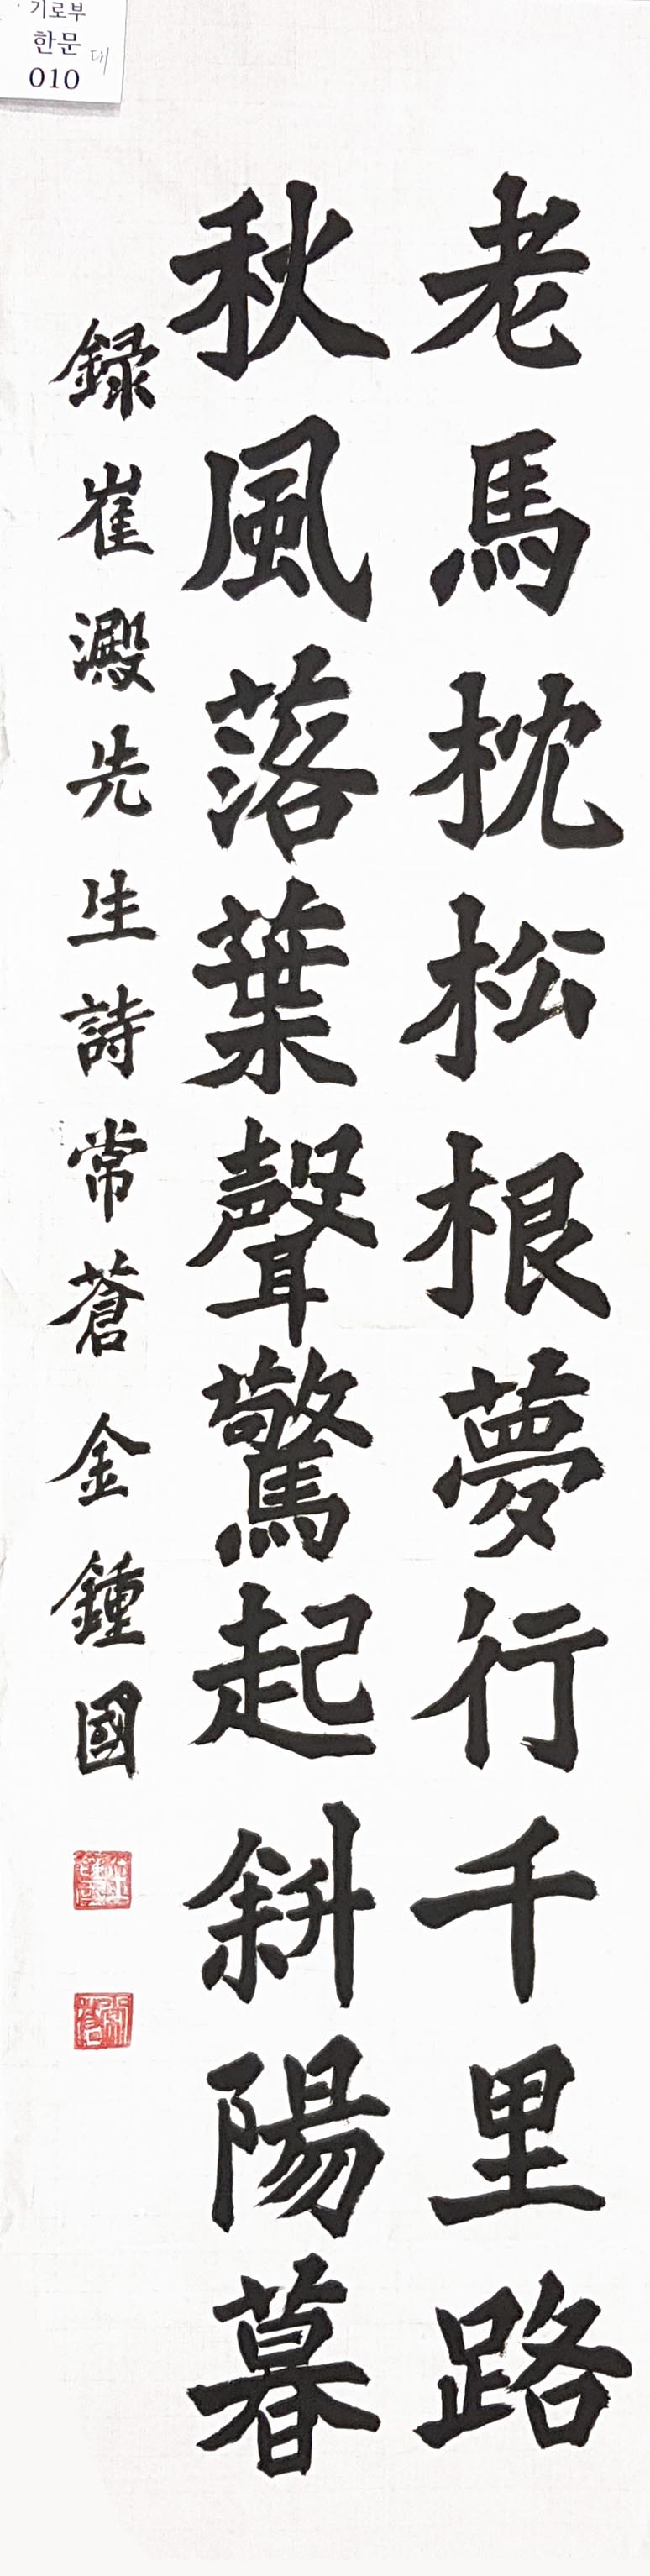 기로부
한문 대
010
老馬枕松根夢行千里路
秋風落葉聲驚起斜陽暮
録崔澱先生詩常蒼金鍾國